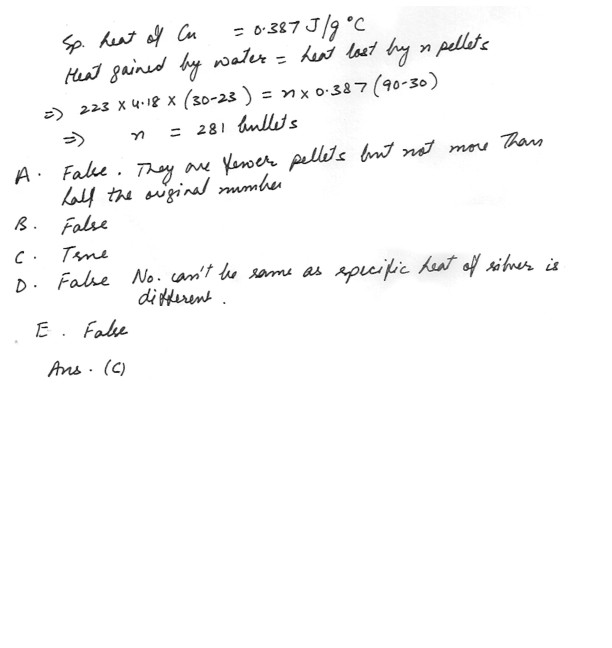 Sp. heat of Cu = 0.387 J/g °C
Heat gained by water = heat lost by n pellets
=> 223 x 4.18 x (30-23) = n x 0.387 (90-30)
=> n = 281 bullets
A. False. They are fewer pellets but not more than
half the original number
B. False
C. True
D. False No. can't be same as specific heat of silver is
different.
E. False
Ans. (C)